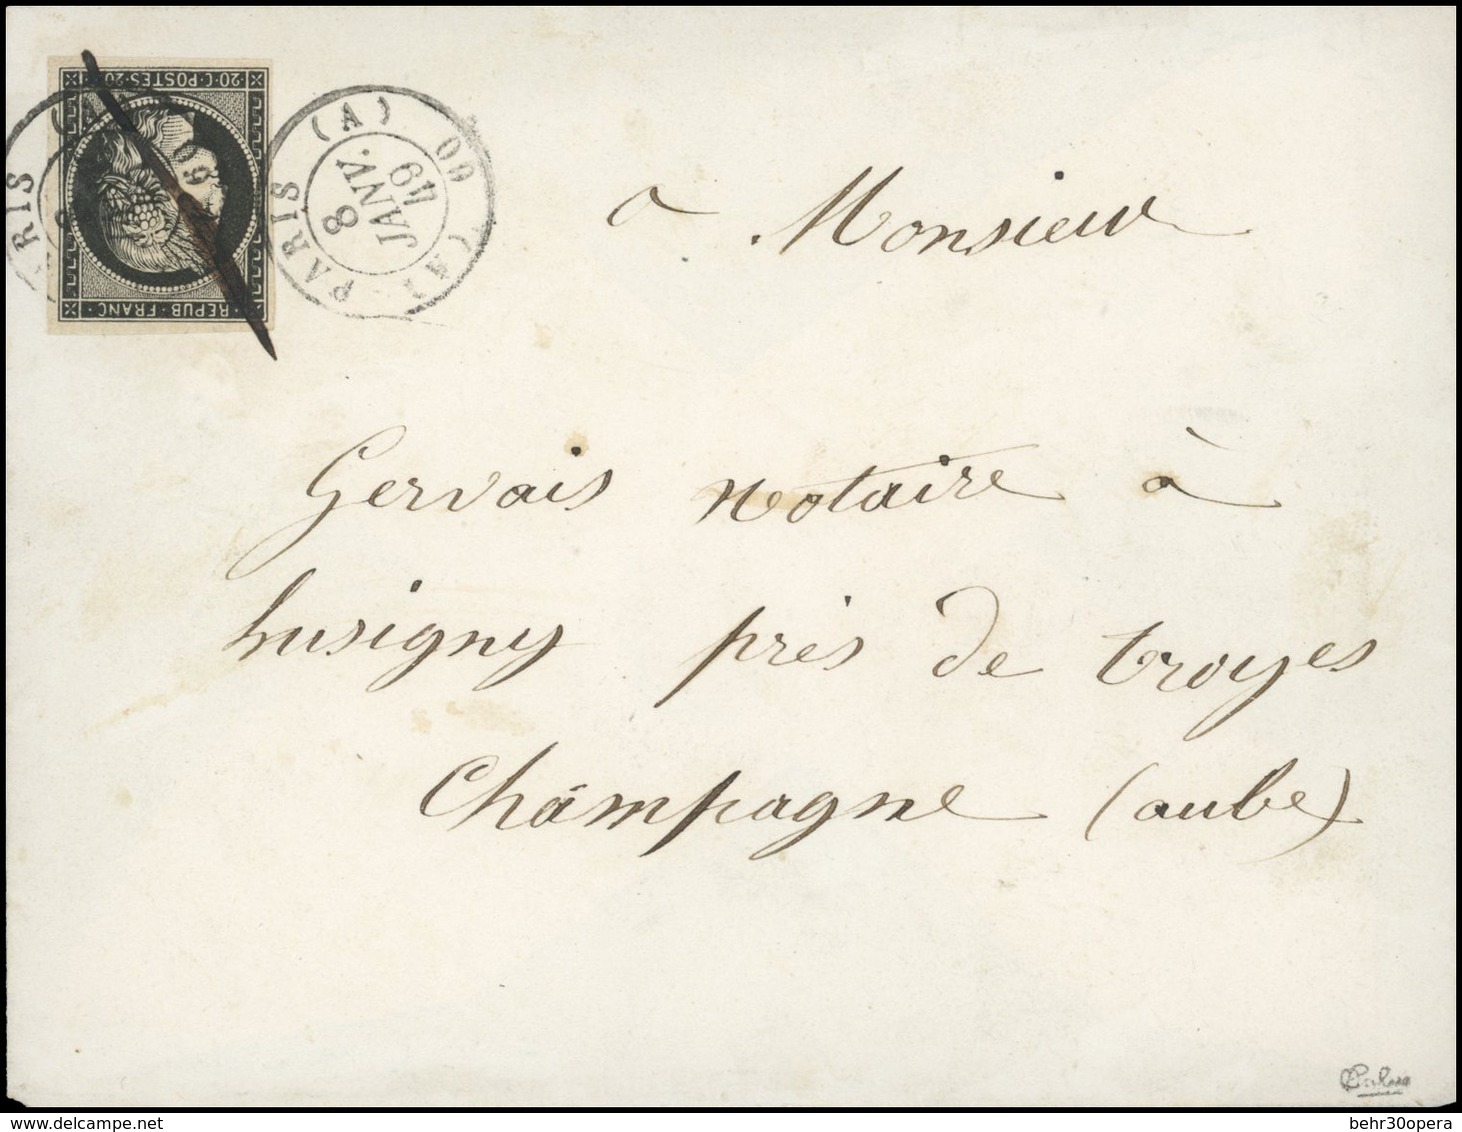 20·C·POSTES·20
REPUB·FRANC·
PARIS (A)
8
JANV.
49
60
PARIS (A)
8
JANV.
49
60
a Monsieur
Gervais notaire à
Lusigny près de troyes
Champagne (aube)
delcampe.net
behr30opera